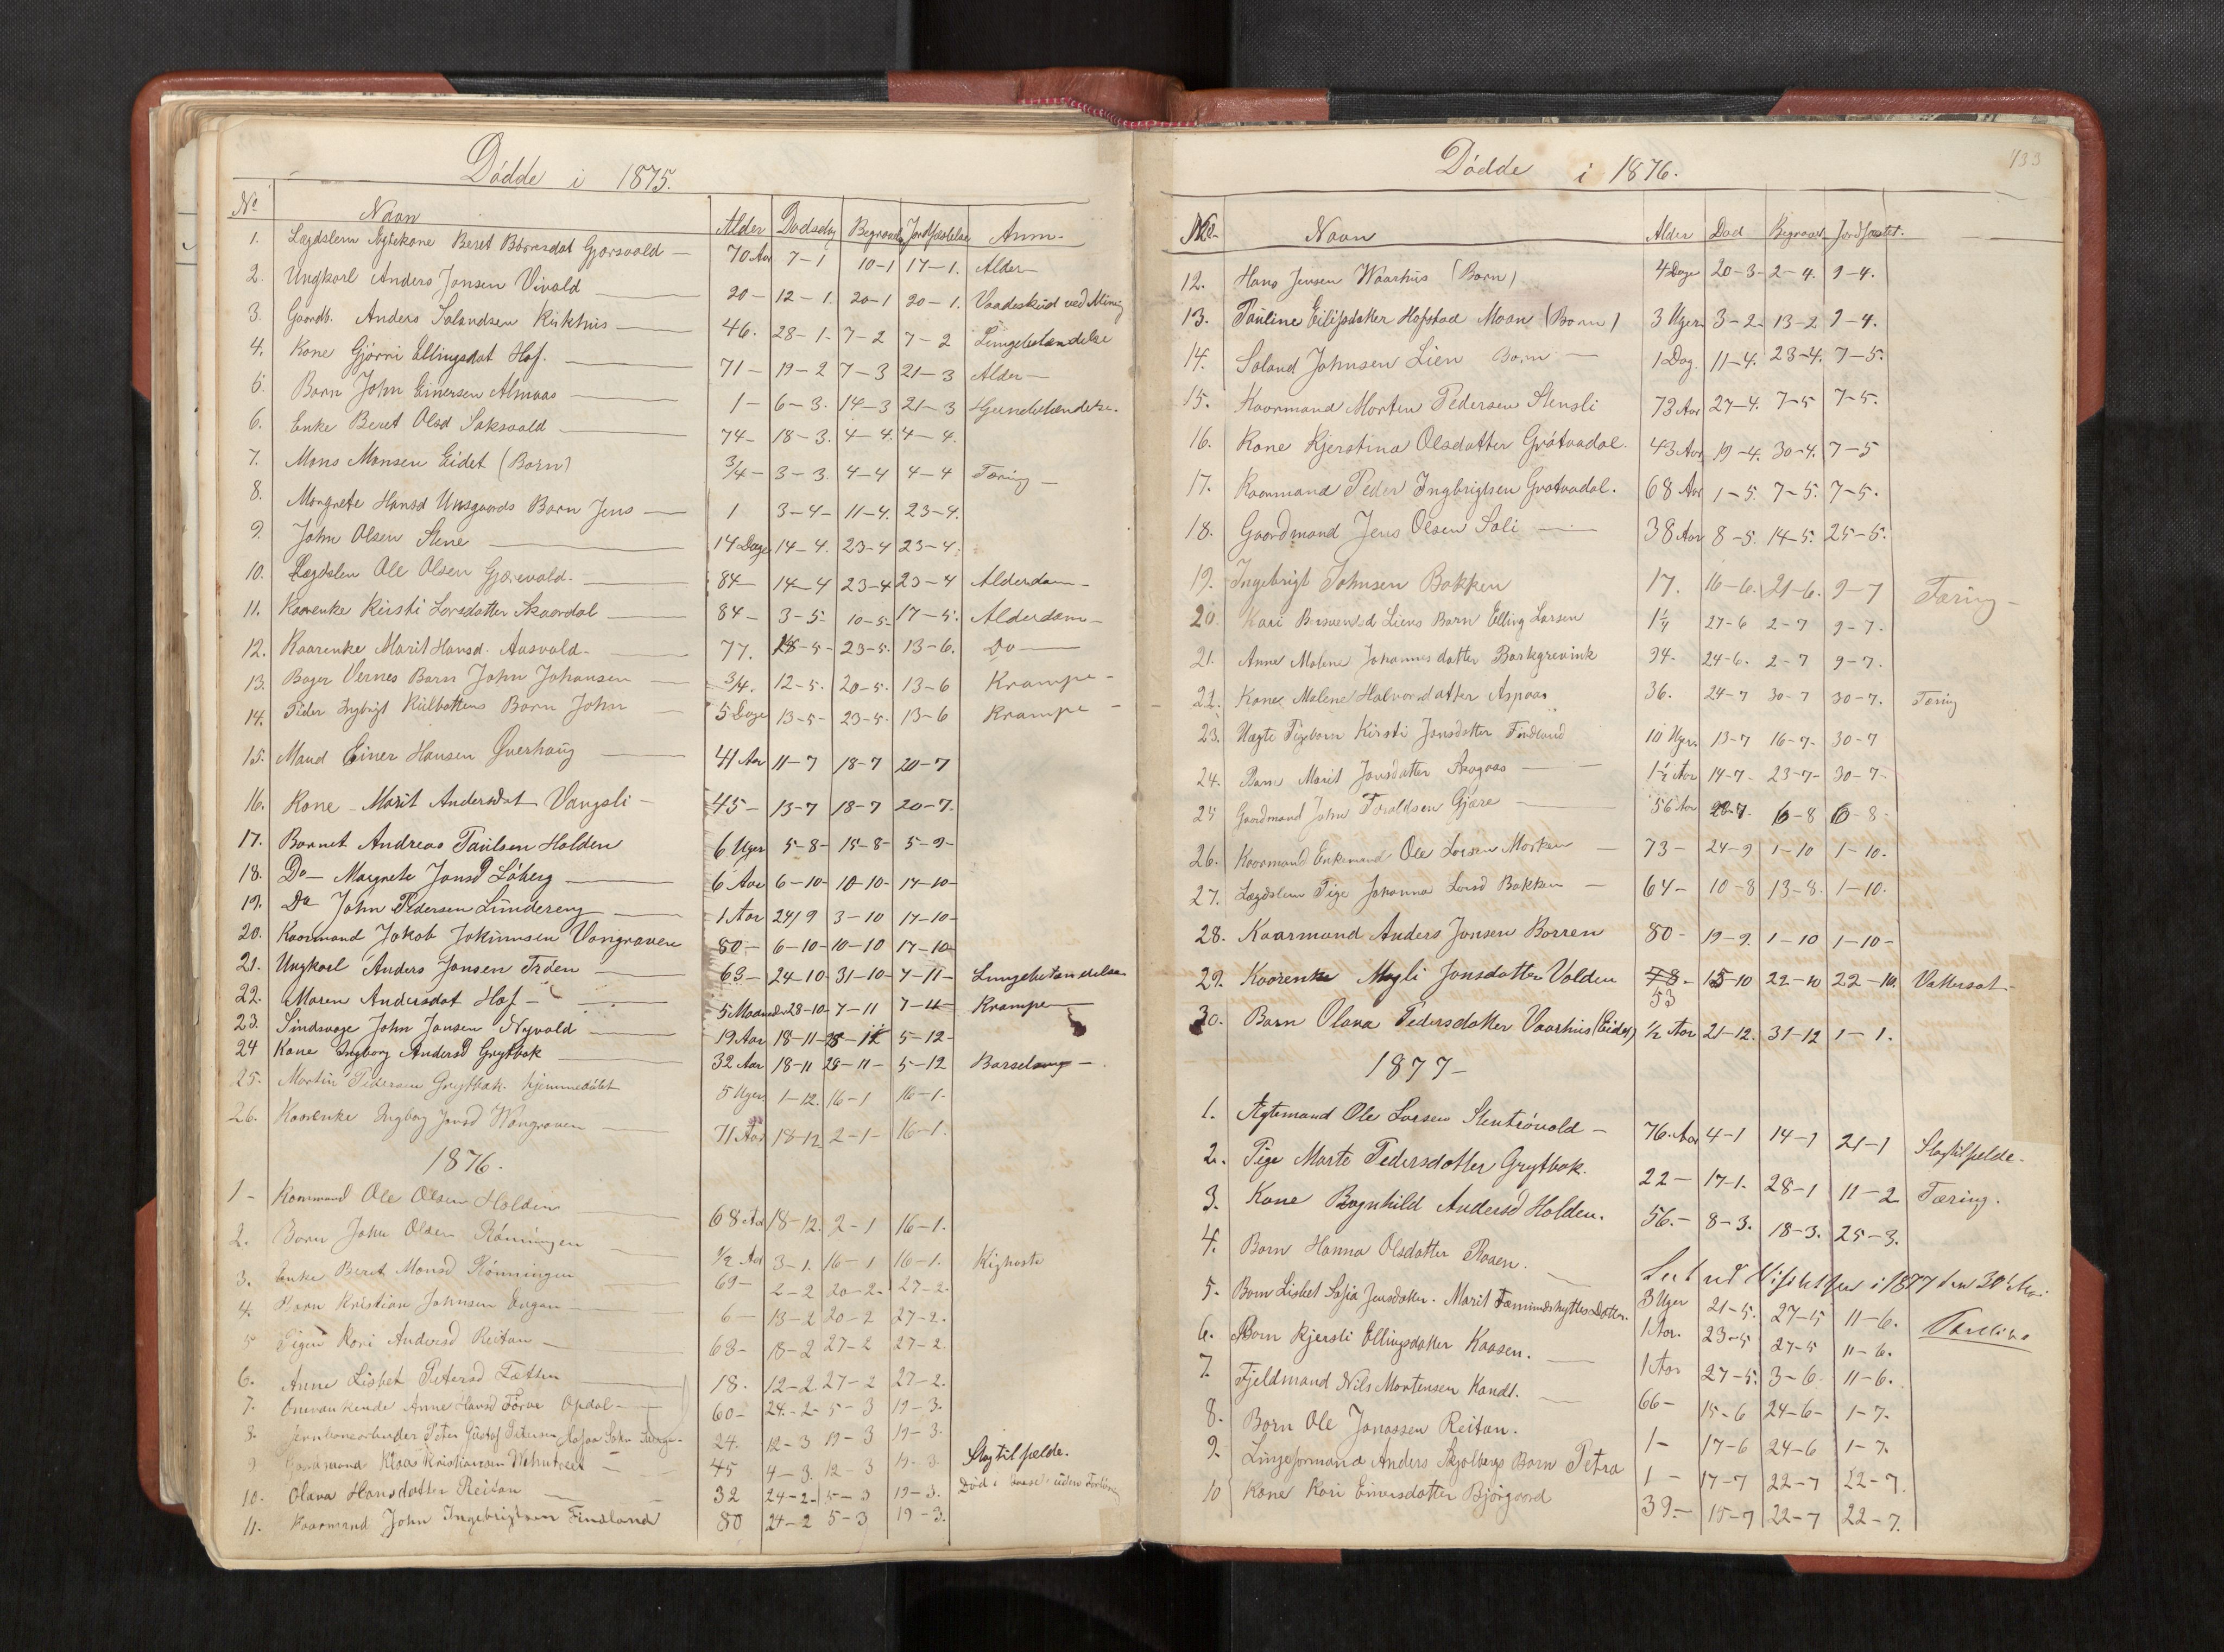 Dödde i 1875.
No Navn Alder Dödsdag Begravels. Jordfæstelse Anm.
1. Lægdslem Ægtekone Beret Börresdat Gjorsvold — 70 Aar 7-1 10-1 17-1. Alder
2. Ungkarl Anders Jonsen Vivold — 20 — 12-1. 20-1 20-1. Vaadeskud ved Mining
3. Gaardb. Anders Salandsen Kirkhus — 46. 28-1- 7-2 7-2 Lungebetændelse
4. Kone Gjörri Ellingsdat Hof. — 71 — 19-2 7-3 21-3 Alder —
5. Barn John Einersen Almaas — 1 — 6-3. 14-3 21-3
6. Enke Beret Olsd Saksvold — 74 — 18-3. 4-4. 4-4.
7. Mons Monsen Eidet (Barn) 3/4 — 3-3. 4-4 4-4 Tæring —
8. Margrete Hansd Unsgaards Barn Jens — 1 3-4- 11-4. 23-4.
9. John Olsen Stene — 14 Dage 14-4. 23-4 23-4.
10. Lægdslem Ole Olsen Gjærevold. — 84 — 14-4 23-4 23-4 Alderdom —
11. Kaarenke Kirsti Larsdatter Skaardal — 84 — 3-5- 10-5- 17-5. Alderdom —
12. Kaarenke Marit Hansd. Aasvold — 77. 18-5- 23-5. 13-6. Do —
13. Bager Vernes Barn John Johansen — 3/4. 12-5. 20-5. 13-6 Krampe —
14. Peder Ingbrigt Külbottens Barn John — 5 Dage 13-5- 23-5. 13-6 Krampe —
15. Mand Einer Hansen Qverhaug — 41 Aar 11-7 18-7 20-7
16. Kone Marit Andersdat Vangsli — 45 — 13-7 18-7 20-7.
17. Barnet Andreas Paulsen Holden 6 Uger 5-8- 15-8- 5-9-
18. Do — Margrete Jonsd Löberg — 6 Aar 6-10- 10-10- 17-10-
19. Do John Pedersen Lündereng — 1 Aar 24/9 3-10 17-10-
20. Kaarmand Jakob Jokumsen Vongraven 80 — 6-10- 10-10 17-10-
21. Ungkarl Anders Jonsen Tröen — 63 — 24-10- 31-10- 7-11- Lungebetændelse
22. Maren Andersdat Hof — 5 Maaneder 28-10- 7-11 7-11- Krampe
23. Sindsvage John Jonsen Nyvold — 19 Aar 18-11- 5-12-
24 Kone Ingborg Andersd Grytbak — 32 Aar 18-11 28-11- 5-12 Barselseng —
25. Martin Pedersen Grytbak. hjemmedöbt 5 Uger 1-12. 16-1 16-1.
26. Kaarenke Ingborg Jonsd Wongraven — 71 Aar 18-12 2-1- 16-1.
1876.
1 - Kaarmand Ole Olsen Holden — 68 Aar 18-12. 2-1 16-1.
2. Barn John Olsen Rönningen — 1/2 Aar 3-1. 16-1 16-1. Kighoste
3. Enke Beret Monsd Rönningen — 69 — 2-2 20-2- 27-2-
4. Barn Kristian Johnsen Engan — 6 — 13-2 20-2 27-2-
5 Pigen Kari Andersd Reitan — 63 — 18-2 27-2 27-2.
6. Anne Lisbet Petersd Tætten — 18. 12-2. 27-2 27-2.
7. Omvankende Anne Hansd Forve Opdal — 60 — 24-2- 5-3 19-3.
8. Jernbanearbeider Peter Gustaf Petersen 24. 12-3 19-3 19-3.
9 Gaardmand Klaas Kristiansen — 45 4-3. 12-3 19-3. Slagtilfælde.
10. Olava Hansdatter Reitan — 32 24-2- 5-3 19-3. Död i Barsel uden Forlösn
11. Kaarmand John Ingebrigtsen Findland 80 24-2 5-3 19-3.
133
Dödde i 1876.
No. Navn Alder Död Begravet Jordfæstet.
12. Hans Jensen Waarhus (Barn) 4 Dage 20-3- 2-4. 9-4.
13. Pauline Eilifsdatter Hofstad Moan (Barn) 3 Uger 3-2- 13-2 9-4.
14. Saland Johnsen Lien Barn — 1 Dag. 11-4. 23-4. 7-5.
15. Kaarmand Morten Pedersen Stensli 73 Aar 27-4. 7-5 7-5.
16. Kone Kjerstina Olsdatter Gråtaadal. 43 Aar 19-4. 30-4. 7-5
17. Kaarmand Peder Ingbrigtsen Gratvadal. 68 Aar 1-5. 7-5. 7-5.
18. Gaardmand Jens Olsen Soli — 38 Aar 8-5. 14-5. 25-5.
19. Ingebrigt Johnsen Bakken 17. 16-6. 21-6. 9-7 Tæring —
20. Kari Liens Barn Elling Larsen 1 1/4 27-6 2-7 9-7.
21. Anne Malene Johannesdatter Borkgrevink 34. 24-6. 2-7 9-7.
22. Kone Malene Halvorsdatter Aspaas 36. 24-7 30-7 30-7. Tæring
23. Uægte Pigebarn Kirsti Jonsdatter Findland 10 Uger 13-7 16-7- 30-7
24. Barn Marit Jonsdatter Skogaas — 1 1/2 Aar 14-7- 23-7- 30-7-
25 Gaardmand John Toraldsen Gjære — 56 Aar 28-7. 6-8 6-8-
26. Kaarmand Enkemand Ole Larsen Morken — 73 — 24-9 1-10 1-10.
27. Lægdslem Pige Johanna Larsd Bakken — 64 — 10-8 13-8. 1-10.
28. Kaarmand Anders Jonsen Borren 80 — 19-9. 1-10 1-10 —
29. Kaarenke Magli Jonsdatter Volden 78 — 15-10 22-10 22-10. Vattersot
53
30. Barn Olava Pedersdatter Vaarhus (Eidet) 1/2 Aar 21-12. 31-12 1-1.
1877 —
1. Ægtemand Ole Larsen Stentrövold — 76. Aar 4-1 14-1 21-1 Slagtilfælde.
2. Pige Marte Pedersdatter Grytbak. 22 — 17-1. 28-1 11-2 Tæring.
3. Kone Ragnhild Andersd Holden. 56. — 8-3. 18-3. 25-3.
4. Barn Hanna Olsdatter Raaen. — i 1877 den 30te Mai
5. Barn Lisbet Sofia Jensdatter. Marit Fæmundshyttes Datter. 3 Uger 21-5. 27-5 11-6.
6. Barn Kjersti Ellingsdatter Kaasen. — 1 Aar. 23-5 27-5 11-6.
7. Fjeldmand Nils Mortensen Kandt. — 1 Aar 27-5. 3-6. 11-6.
8. Barn Ole Jonassen Reitan. 66 — 15-6 24-6- 1-7.
9. Linjeformand Anders Skjölbergs Barn Petra 1 — 17-6 24-6 1-7.
10 Kone Kari Einersdatter Bjørgaard 1 — 17-7 22-7 22-7.
39. — 15-7 22-7 22-7.